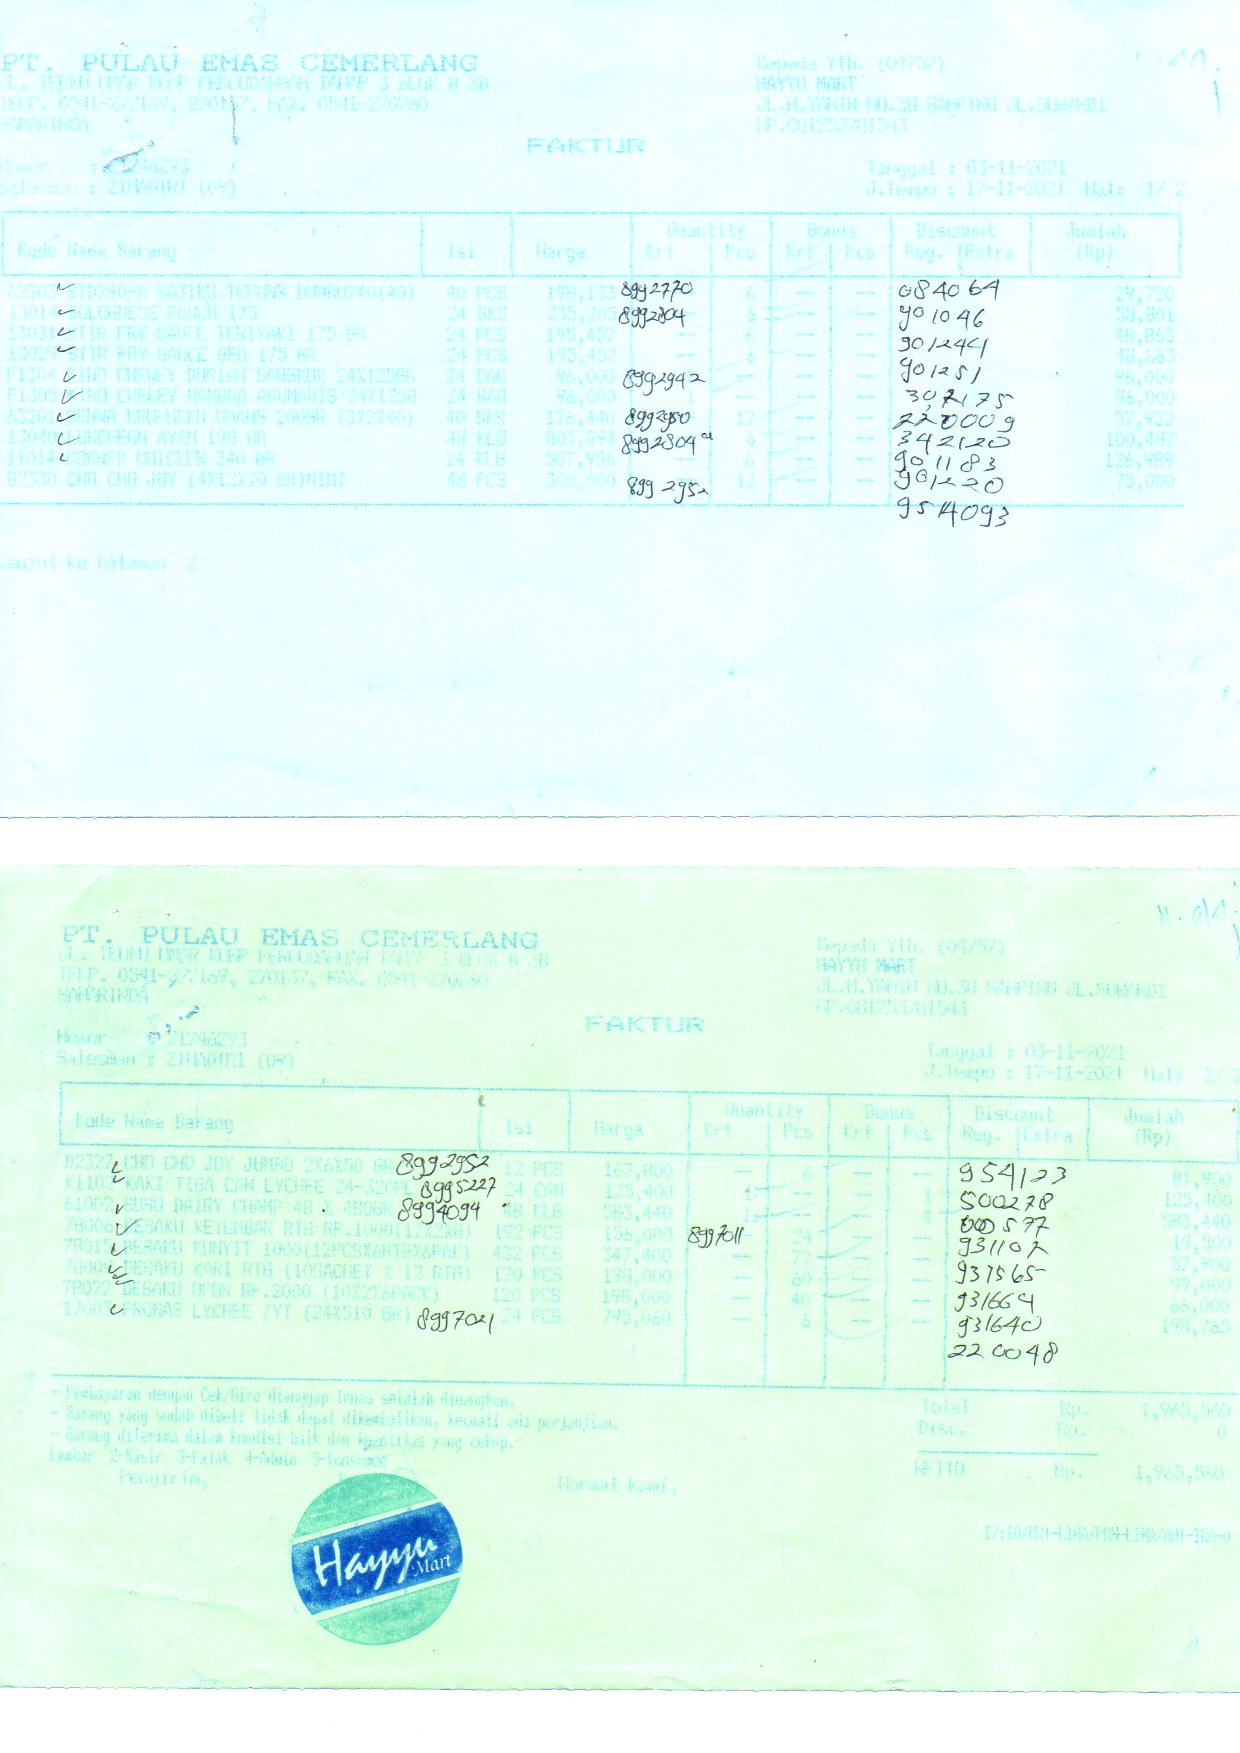 PT. PULAU EMAS CEMERLANG
JL. TEUKU UMAR KOMP PERGUDANGAN TAHAP 3 BLOK B 3B
TELP. 0541-272169, 270137, FAX. 0541-270260
SAMARINDA
Kepada Yth. (04/57)
HAYYU MART
JL.M.YAMIN NO.38 SAMPING JL.SUWANDI
HP.081253781543
FAKTUR
Nomor : 21246293
Salesman : ZUHADIRI (09)
Tanggal : 03-11-2021
J.Tempo : 17-11-2021 Hal: 1/ 2
Kode Nama Barang Isi Harga Quantity Krt Pcs Bonus Krt Pcs Discount Reg. Extra Jumlah (Rp)
62303 BUMBU240(40) 40 PCS 198,133 8992770 6 -- -- 084064 29,720
13014 BOLOGNESE 175 24 BKS 235,205 8992804 6 -- -- 901046 58,801
13031 STIR FRY SAUCE TERIYAKI 175 GR 24 PCS 195,452 -- 6 -- -- 901244 48,863
13029 STIR FRY SAUCE BBQ 175 GR 24 PCS 195,452 -- 6 -- -- 901251 48,863
F1304 KINO CHEWEY DURIAN 24X120GR 24 BAG 96,000 8992942 -- -- -- 302175 96,000
F1305 KINO CHEWEY MANGGA ARUMANIS 24X120G 24 BAG 96,000 1 -- -- -- 220009 96,000
63201 KRUPUKKU UDANG 200GR (3X2X40) 40 BKS 176,440 8992950 12 -- -- 342120 52,932
13040 LUNCHEON AYAM 198 GR 48 KLG 803,894 8992804 6 -- -- 901183 100,487
11014 CORNED CHICKEN 340 GR 24 KLG 507,956 -- 6 -- -- 901220 126,989
D2330 CHO CHO JOY (4X12X20 GR)MINI 48 PCS 300,000 8992952 12 -- -- 954093 75,000
Lanjut ke halaman 2
PT. PULAU EMAS CEMERLANG
JL. TEUKU UMAR KOMP PERGUDANGAN TAHAP 3 BLOK B 3B
TELP. 0541-272169, 270137, FAX. 0541-270260
SAMARINDA
Kepada Yth. (04/57)
HAYYU MART
JL.M.YAMIN NO.38 SAMPING JL.SUWANDI
HP.081253781543
FAKTUR
Nomor : 21246293
Salesman : ZUHADIRI (09)
Tanggal : 03-11-2021
J.Tempo : 17-11-2021 Hal: 2/ 2
Kode Nama Barang Isi Harga Quantity Krt Pcs Bonus Krt Pcs Discount Reg. Extra Jumlah (Rp)
D2327 CHO CHO JOY JUMBO 2X6X50 GR 8992952 12 PCS 163,800 -- 6 -- -- 954123 81,900
K1102 KAKI TIGA CAN LYCHEE 24-320ML 8995227 24 CAN 125,400 1 -- -- 1 500278 125,400
61002 SUSU DAIRY CHAMP 48 X 480GR 8994094 48 KLG 583,440 1 -- -- 4 000577 583,440
78006 DESAKU KETUMBAR RTG RP.1000(12X2X8) 192 PCS 156,000 8997011 24 -- -- 931107 19,500
78015 DESAKU KUNYIT 1000(12PCSX6RTGX6PAK) 432 PCS 347,400 -- 72 -- -- 937565 57,900
DESAKU KARI RTG (10SACHET X 12 RTG) 120 PCS 198,000 -- 60 -- -- 931664 99,000
78022 DESAKU OPOR RP.2000 (10X2X6PACK) 120 PCS 198,000 -- 40 -- -- 931640 66,000
17002 PRONAS LYCHEE ZYT (24X510 GR) 8997021 24 PCS 795,060 -- 6 -- -- 220048 198,765
- Pembayaran dengan Cek/Giro dianggap lunas setelah diuangkan.
- Barang yang sudah dibeli tidak dapat dikembalikan, kecuali ada perjanjian.
- Barang diterima dalam kondisi baik dan kuantitas yang cukup.
Lembar 2-Kasir 3-Pajak 4-Admin 5-Konsumen
Total Rp. 1,965,560
Disc. Rp. 0
NETTO Rp. 1,965,560
Pengirim,
Hormat Kami,
Hayyu
Mart